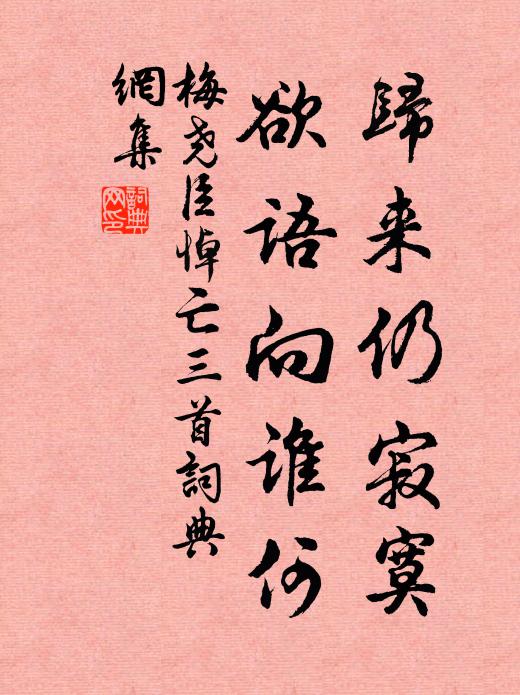 歸来仍寂寞
欲語向誰何
梅尧臣悼亡三首詞典
網集
詞典
网印